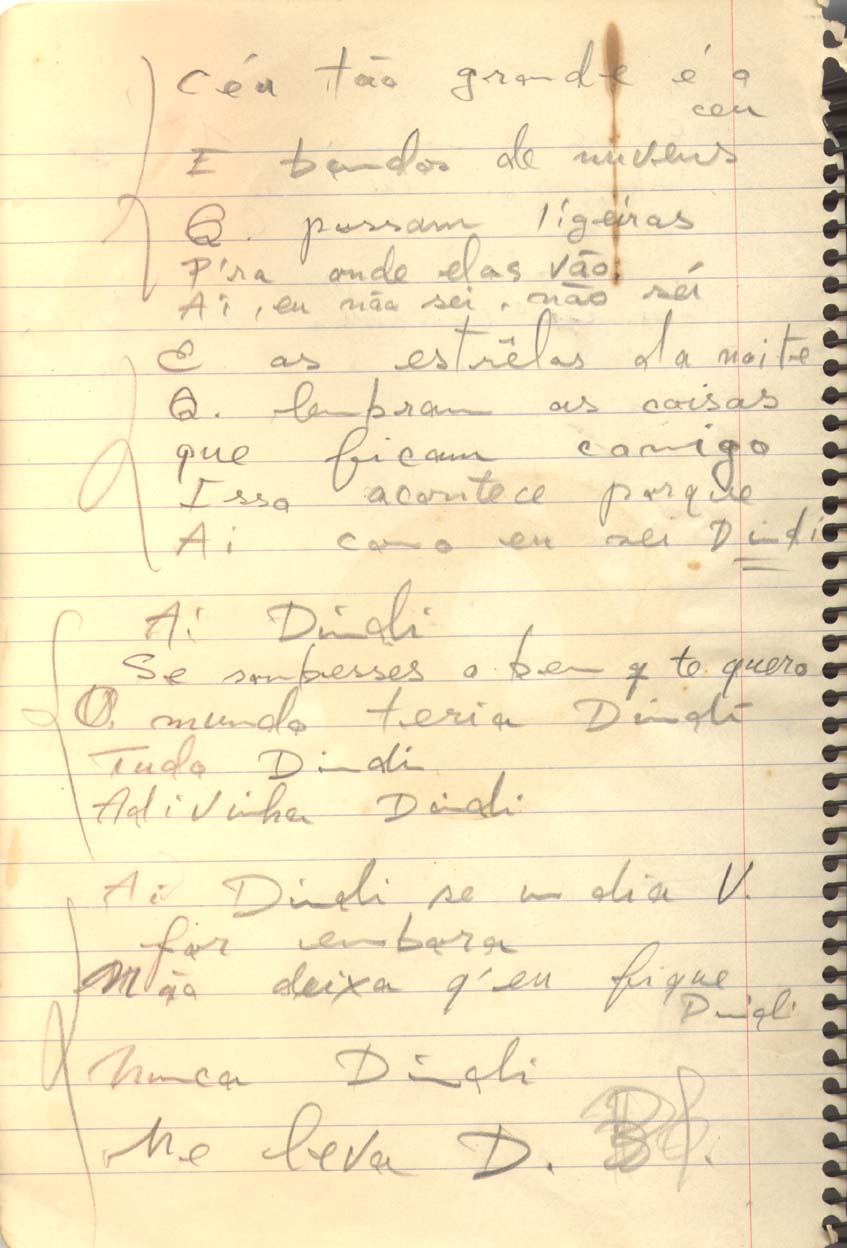 Céu tão grande é o
céu
E bandos de nuvens
Q. passam ligeiras
P'ra onde elas vão.
Ai, eu não sei, não sei
E as estrêlas da noite
Q. lembram as coisas
que ficam comigo
Isso acontece porque
Ai como eu sei Dindi
Ai Dindi
Se soubesses o bem q te quero
O mundo teria Dindi
Tudo Dindi
Adivinha Dindi
Ai Dindi se um dia V.
for embora
Não deixa q'eu fique
Dindi
Nunca Dindi
Me leva D.